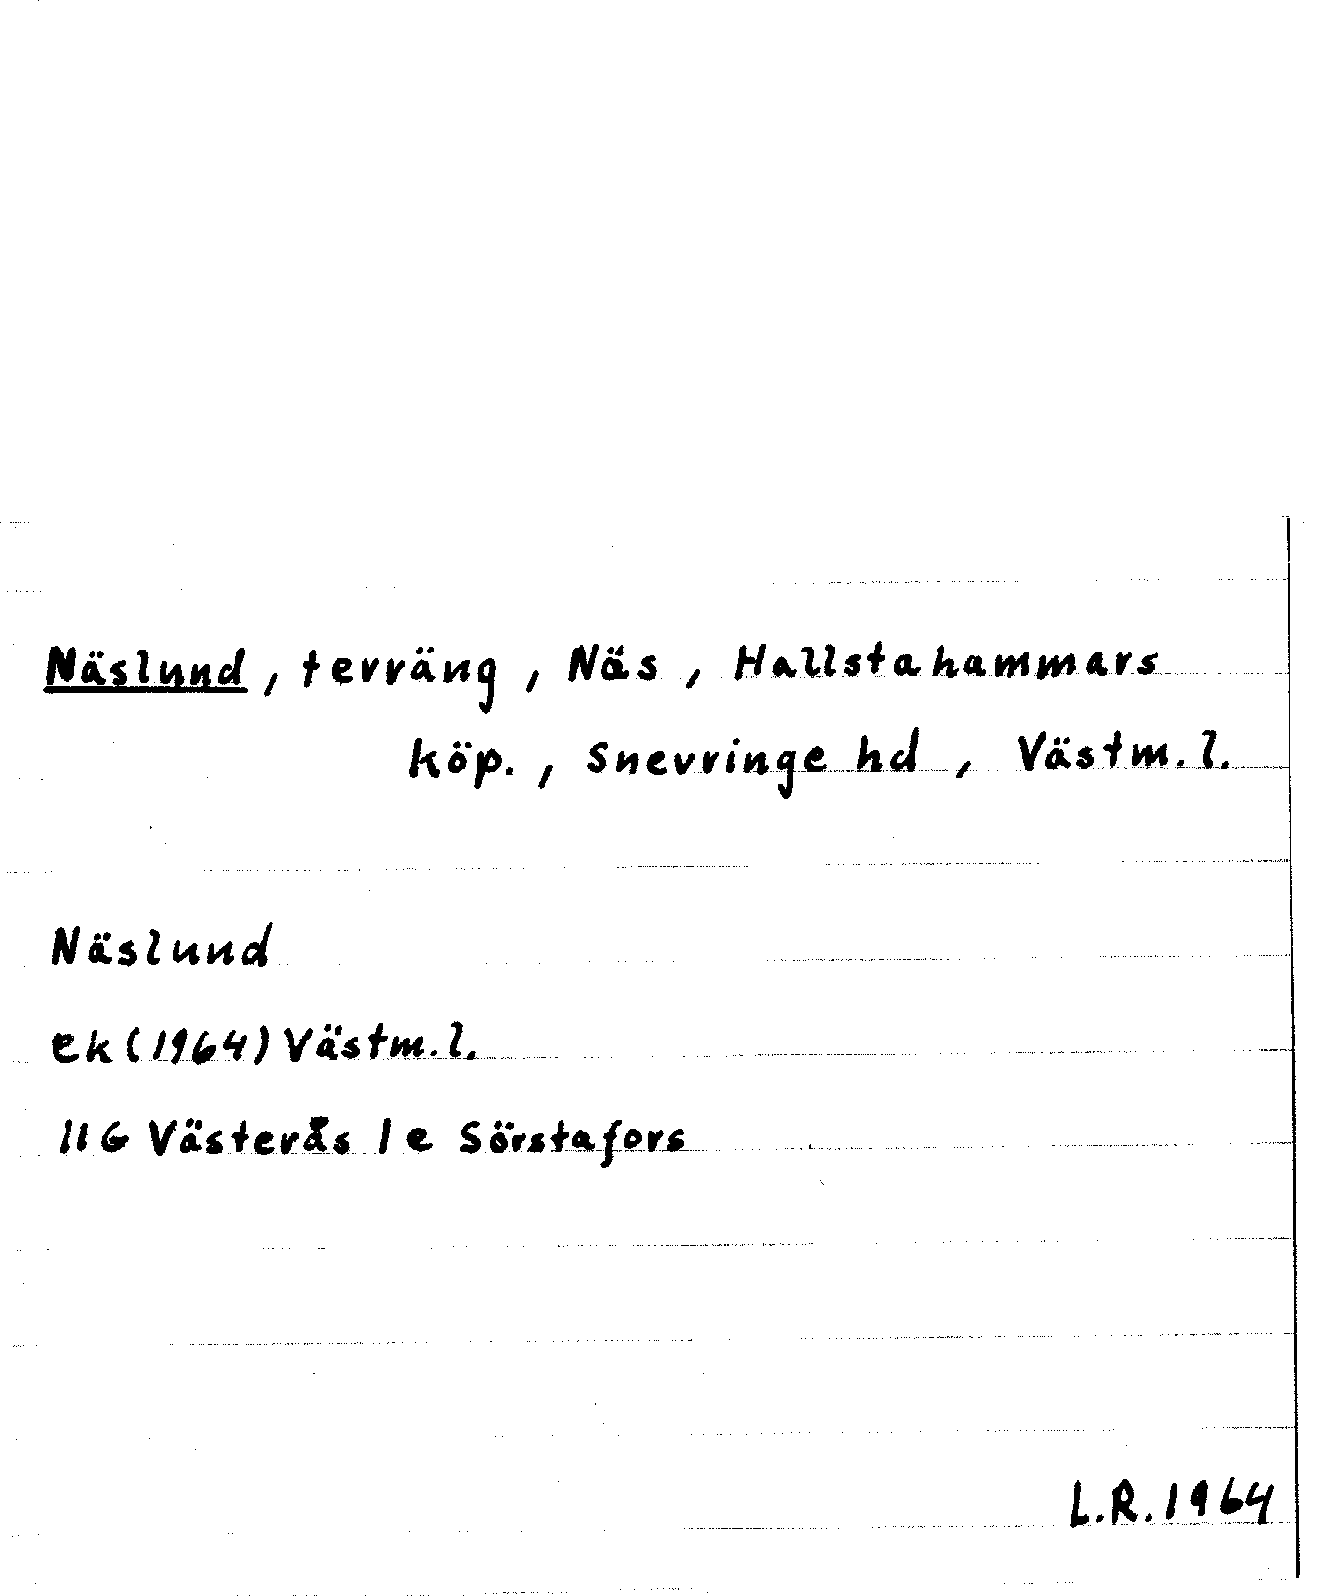 Näslund, terräng, Näs, Hallstahammars
köp., Snevringe hd, Västm. l.
Näslund
ek (1964) Västm. l.
11G Västerås 1e Sörstafors
L.R. 1964